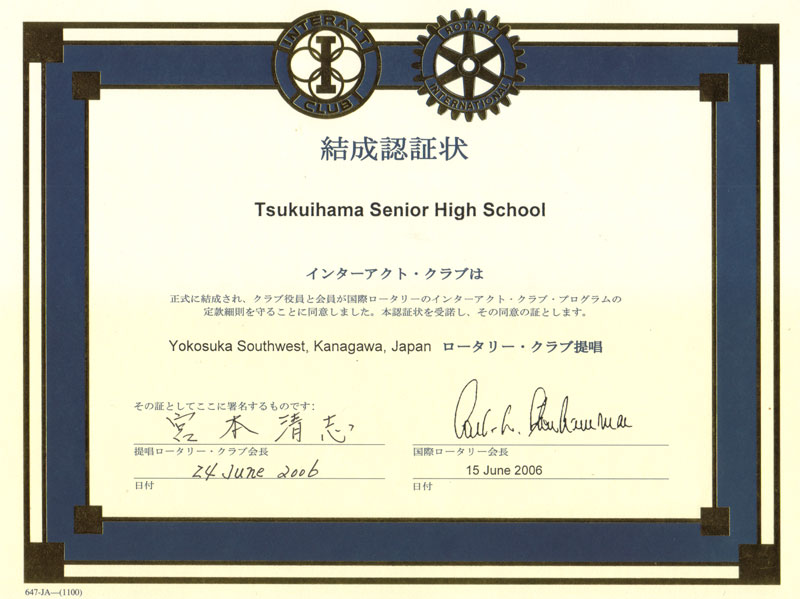 INTERACT CLUB
ROTARY INTERNATIONAL
結成認証状
Tsukuihama Senior High School
インターアクト・クラブは
正式に結成され、クラブ役員と会員が国際ロータリーのインターアクト・クラブ・プログラムの
定款細則を守ることに同意しました。本認証状を受諾し、その同意の証とします。
Yokosuka Southwest, Kanagawa, Japan ロータリー・クラブ提唱
その証としてここに署名するものです:
宮本清志
提唱ロータリー・クラブ会長
国際ロータリー会長
24 June 2006
15 June 2006
日付
日付
647-JA—(1100)